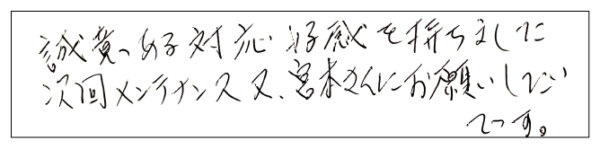 誠意ある対応好感を持ちました
次回メンテナンス又、宮本さんにお願いしたい
です。